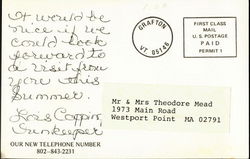 It would be
nice if we
could look
forward to
a visit from
you this
Summer.
Lois Coppin,
Innkeeper
OUR NEW TELEPHONE NUMBER
802-843-2231
GRAFTON
VT 05146
FIRST CLASS
MAIL
U.S. POSTAGE
PAID
PERMIT 1
Mr & Mrs Theodore Mead
1973 Main Road
Westport Point MA 02791